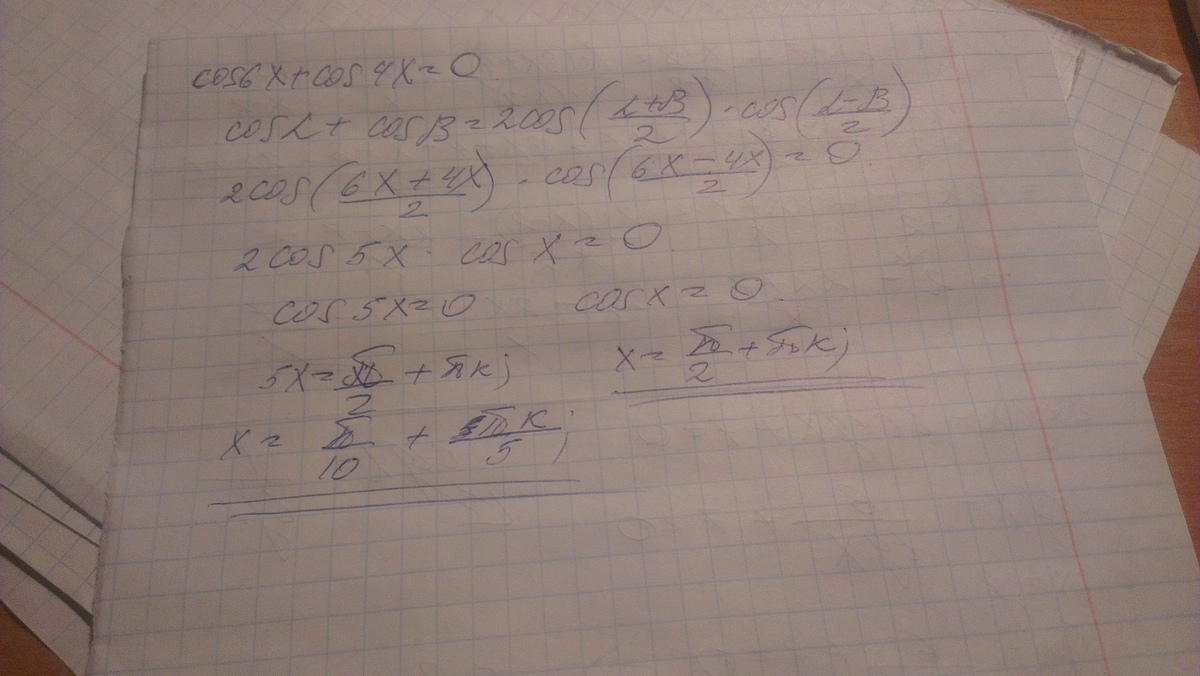 cos6x+cos4x=0.
cosα+cosβ=2cos(α+β/2)·cos(α-β/2)
2cos(6x+4x/2)·cos(6x-4x/2)=0.
2cos5x·cosx=0
cos5x=0 cosx=0.
5x=π/2+πk; x=π/2+πk;
x=π/10+πk/5;